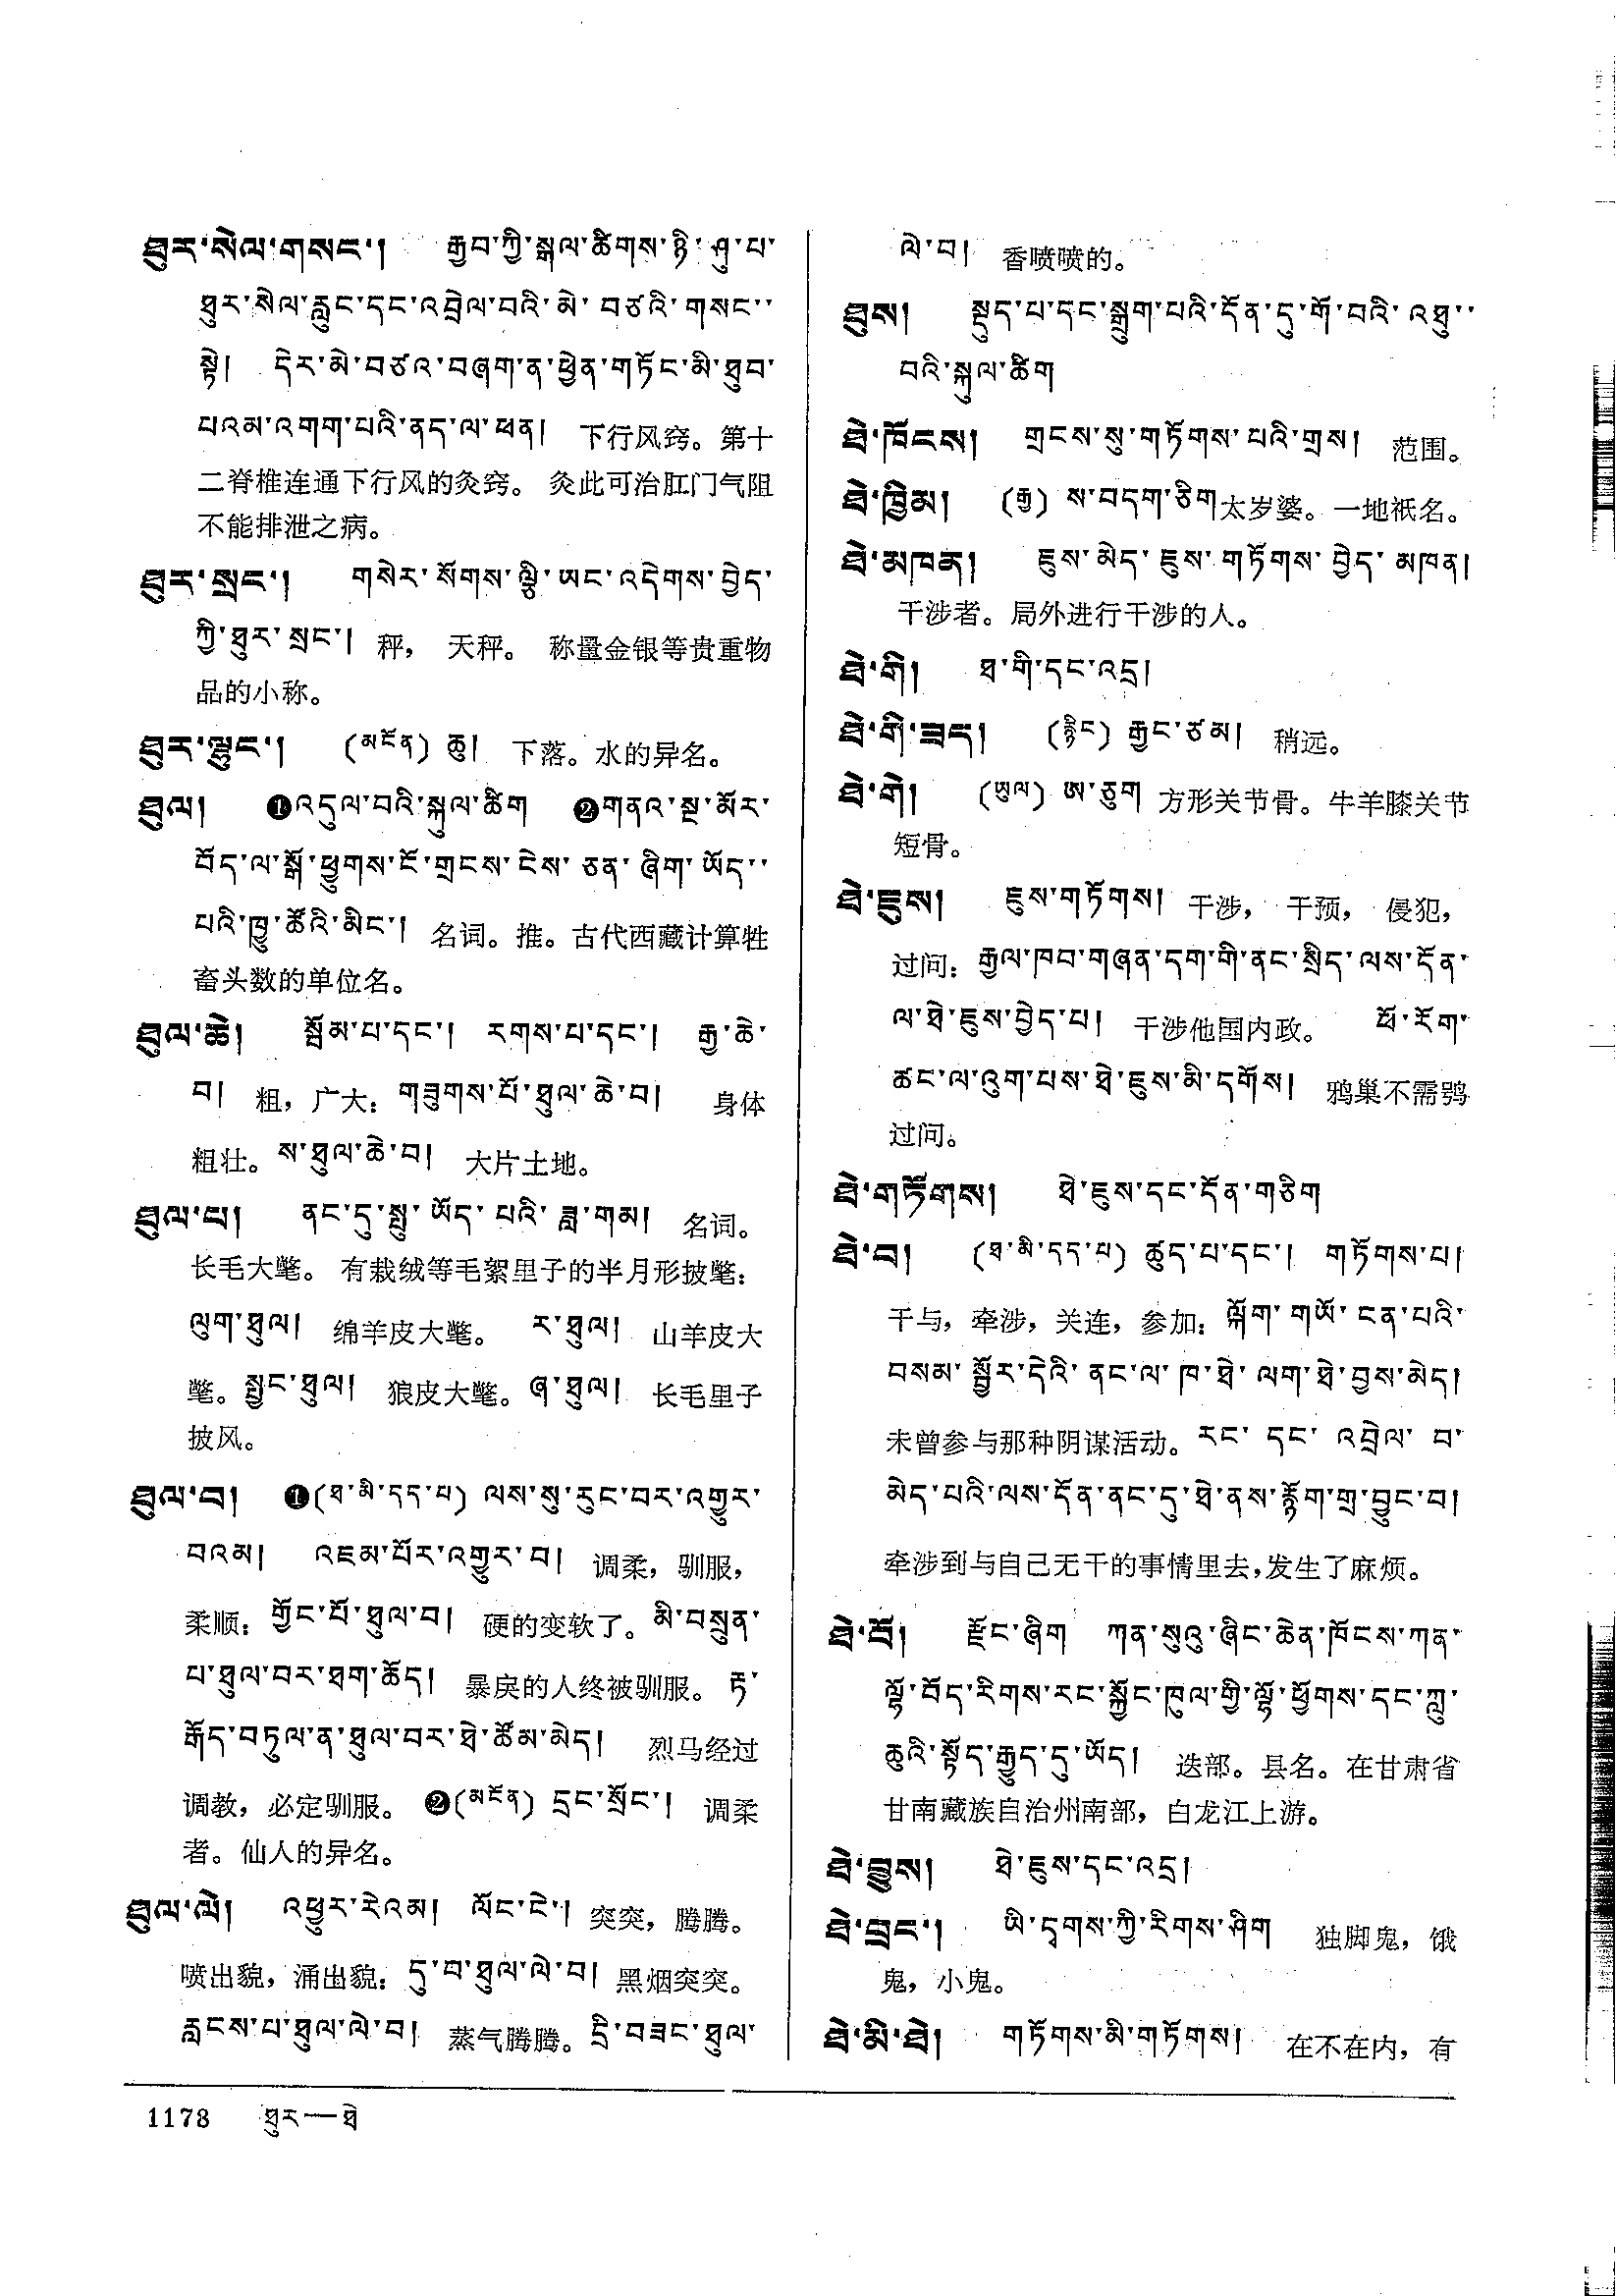 ཐུར་སེལ་གསང་། རྒྱབ་ཀྱི་སྒལ་ཚིགས་ཉི་ཤུ་པ་
ཐུར་སེལ་རླུང་དང་འབྲེལ་བའི་མེ་བཙའི་གསང་་
སྟེ། དེར་མེ་བཙའ་བཞག་ན་ཕྱེན་གཏོང་མི་ཐུབ་
པའམ་འགག་པའི་ནད་ལ་ཕན། 下行风窍。第十
二脊椎连通下行风的灸窍。 灸此可治肛门气阻
不能排泄之病。
ཐུར་སྲང་། གསེར་སོགས་ལྕི་ཡང་འདེགས་བྱེད་
ཀྱི་ཐུར་སྲང་། 秤， 天秤。 称量金银等贵重物
品的小称。
ཐུར་ལྷུང་། (མངོན) ཆུ། 下落。水的异名。
ཐུལ། ❶འདུལ་བའི་སྐུལ་ཚིག ❷གནའ་སྔ་མོར་
བོད་ལ་སྒོ་ཕྱུགས་ངོ་གྲངས་ངེས་ཅན་ཞིག་ཡོད་་
པའི་ཁྱུ་ཚོའི་མིང་། 名词。推。古代西藏计算牲
畜头数的单位名。
ཐུལ་ཆེ། སྦོམ་པ་དང་། རགས་པ་དང་། རྒྱ་ཆེ་
བ། 粗，广大：གཟུགས་པོ་ཐུལ་ཆེ་བ། 身体
粗壮。ས་ཐུལ་ཆེ་བ། 大片土地。
ཐུལ་པ། ནང་དུ་སྤུ་ཡོད་པའི་ཟླ་གམ། 名词。
长毛大氅。 有栽绒等毛絮里子的半月形披氅：
ལུག་ཐུལ། 绵羊皮大氅。 ར་ཐུལ། 山羊皮大
氅。སྤྱང་ཐུལ། 狼皮大氅。ཞ་ཐུལ། 长毛里子
披风。
ཐུལ་བ། ❶(ཐ་མི་དད་པ) ལས་སུ་རུང་བར་འགྱུར་
བའམ། འཇམ་པོར་འགྱུར་བ། 调柔，驯服，
柔顺：གྱོང་པོ་ཐུལ་བ། 硬的变软了。མི་བསྲུན་
པ་ཐུལ་བར་ཐག་ཆོད། 暴戾的人终被驯服。 རྟ་
རྒོད་བཏུལ་ན་ཐུལ་བར་ཐེ་ཚོམ་མེད། 烈马经过
调教，必定驯服。 ❷(མངོན) དྲང་སྲོང་། 调柔
者。仙人的异名。
ཐུལ་ལེ། འཕྱུར་རེའམ། ལོང་ངེ་། 突突，腾腾。
喷出貌，涌出貌：དུ་བ་ཐུལ་ལེ་བ། 黑烟突突。
རླངས་པ་ཐུལ་ལེ་བ། 蒸气腾腾。དྲི་བཟང་ཐུལ་
ལེ་བ། 香喷喷的。
ཐུས། སྡུད་པ་དང་སྒྲུག་པའི་དོན་དུ་གོ་བའི་འཐུ་་
བའི་སྐུལ་ཚིག
ཐེ་ཁོངས། གྲངས་སུ་གཏོགས་པའི་གྲས། 范围。
ཐེ་ཁྱིམ། (རྒྱ) ས་བདག་ཅིག太岁婆。一地祇名。
ཐེ་མཁན། ཇུས་མེད་ཇུས་གཏོགས་བྱེད་མཁན།
干涉者。局外进行干涉的人。
ཐེ་གི། ཐ་གི་དང་འདྲ།
ཐེ་གི་ཟད། (རྙིང) རྒྱང་ཙམ། 稍远。
ཐེ་གེ། (ཡུལ) ཨ་ཅུག 方形关节骨。牛羊膝关节
短骨。
ཐེ་ཇུས། ཇུས་གཏོགས། 干涉， 干预， 侵犯，
过问：རྒྱལ་ཁབ་གཞན་དག་གི་ནང་སྲིད་ལས་དོན་
ལ་ཐེ་ཇུས་བྱེད་པ། 干涉他国内政。 ཕོ་རོག་
ཚང་ལ་འུག་པས་ཐེ་ཇུས་མི་དགོས། 鸦巢不需鸮
过问。
ཐེ་གཏོགས། ཐེ་ཇུས་དང་དོན་གཅིག
ཐེ་བ། (ཐ་མི་དད་པ) ཚུད་པ་དང་། གཏོགས་པ།
干与，牵涉，关连，参加：ལྐོག་གཡོ་ངན་པའི་
བསམ་སྦྱོར་དེའི་ནང་ལ་ཁ་ཐེ་ལག་ཐེ་བྱས་མེད།
未曾参与那种阴谋活动。རང་དང་འབྲེལ་བ་
མེད་པའི་ལས་དོན་ནང་དུ་ཐེ་ནས་རྙོག་གྲ་བྱུང་བ།
牵涉到与自己无干的事情里去，发生了麻烦。
ཐེ་བོ། རྫོང་ཞིག ཀན་སུའུ་ཞིང་ཆེན་ཁོངས་ཀན་
ལྷོ་བོད་རིགས་རང་སྐྱོང་ཁུལ་གྱི་ལྷོ་ཕྱོགས་དང་ཀླུ་
ཆུའི་སྟོད་རྒྱུད་དུ་ཡོད། 迭部。县名。在甘肃省
甘南藏族自治州南部，白龙江上游。
ཐེ་བྱུས། ཐེ་ཇུས་དང་འདྲ།
ཐེ་བྲང་། ཡི་དྭགས་ཀྱི་རིགས་ཤིག 独脚鬼，饿
鬼，小鬼。
ཐེ་མི་ཐེ། གཏོགས་མི་གཏོགས། 在不在内，有
1178 ཐུར—ཐེ